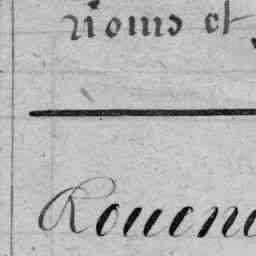 Noms et
Rouen